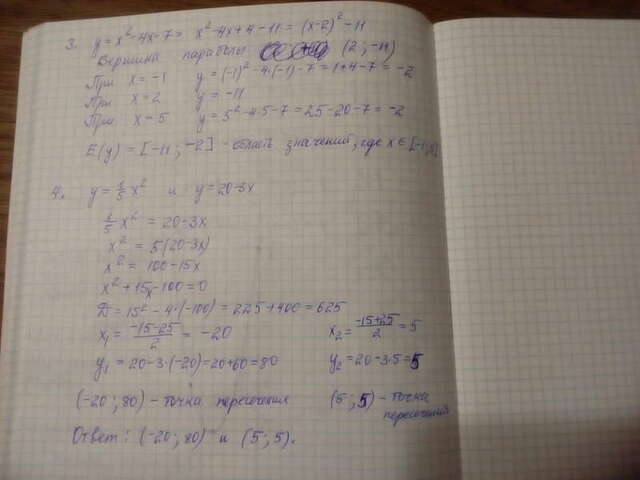 3. y = x² - 4x - 7 = x² - 4x + 4 - 11 = (x-2)² - 11
Вершина параболы (2; -11)
При x = -1 y = (-1)² - 4·(-1) - 7 = 1+4-7 = -2
При x = 2 y = -11
При x = 5 y = 5² - 4·5 - 7 = 25 - 20 - 7 = -2
E(y) = [-11; -2] - область значений, где x ∈ [-1;5]
4. y = 1/5 x² и y = 20-3x
1/5 x² = 20-3x
x² = 5(20-3x)
x² = 100-15x
x² + 15x - 100 = 0
D = 15² - 4·(-100) = 225 + 400 = 625
x₁ = (-15-25)/2 = -20 x₂ = (-15+25)/2 = 5
y₁ = 20-3·(-20) = 20+60 = 80 y₂ = 20-3·5 = 5
(-20; 80) - точка пересечения (5; 5) - точка
пересечения
Ответ: (-20; 80) и (5; 5).